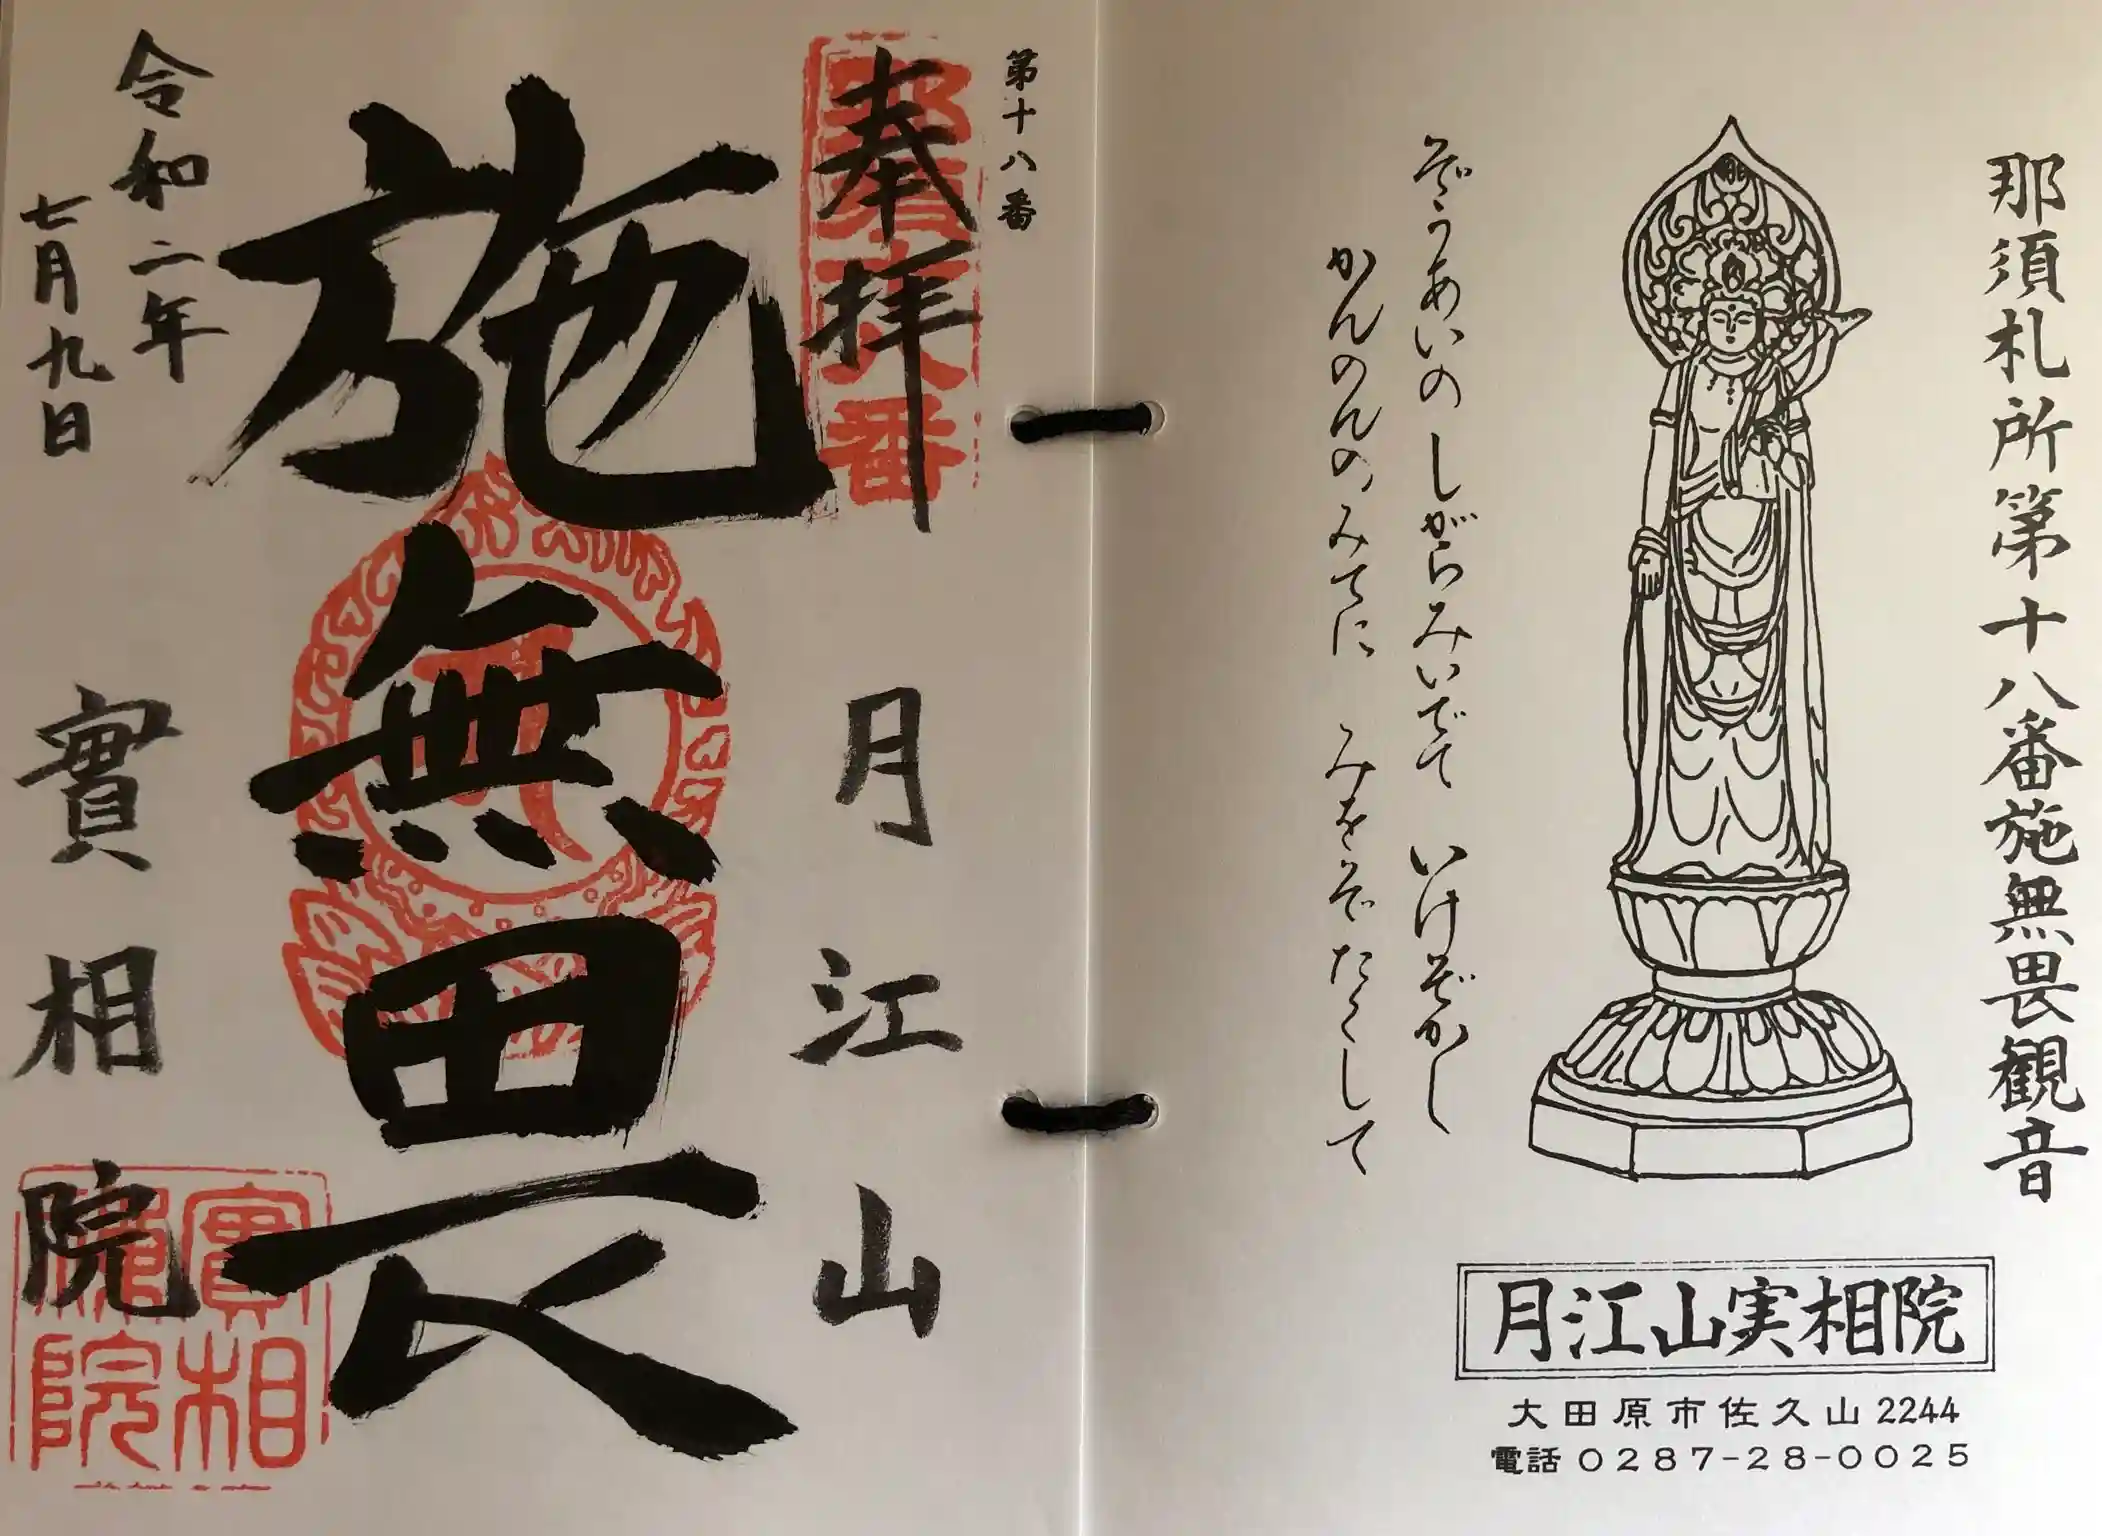 那須札所第十八番施無畏観音
ぞうあいのしがらみいでて いけぞかし
かんのんのみてに みをぞたくして
月江山実相院
大田原市佐久山2244
電話0287-28-0025
第十八番
奉拝
月江山
施無畏
令和二年
七月九日
實相院
實相
院